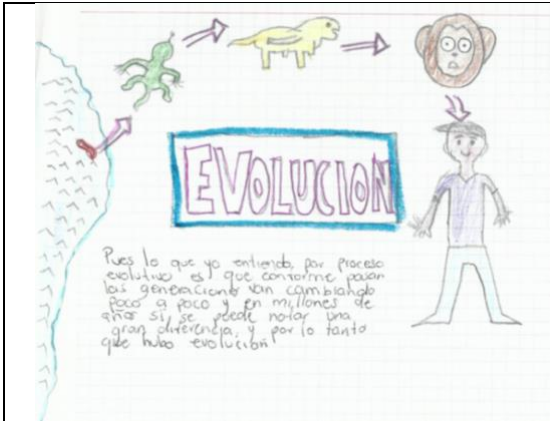 EVOLUCION
Pues lo que yo entiendo, por proceso
evolutivo es que conforme pasan
las generaciones van cambiando
poco a poco y en millones de
años si, se puede notar una
gran diferencia, y por lo tanto
que hubo evolución